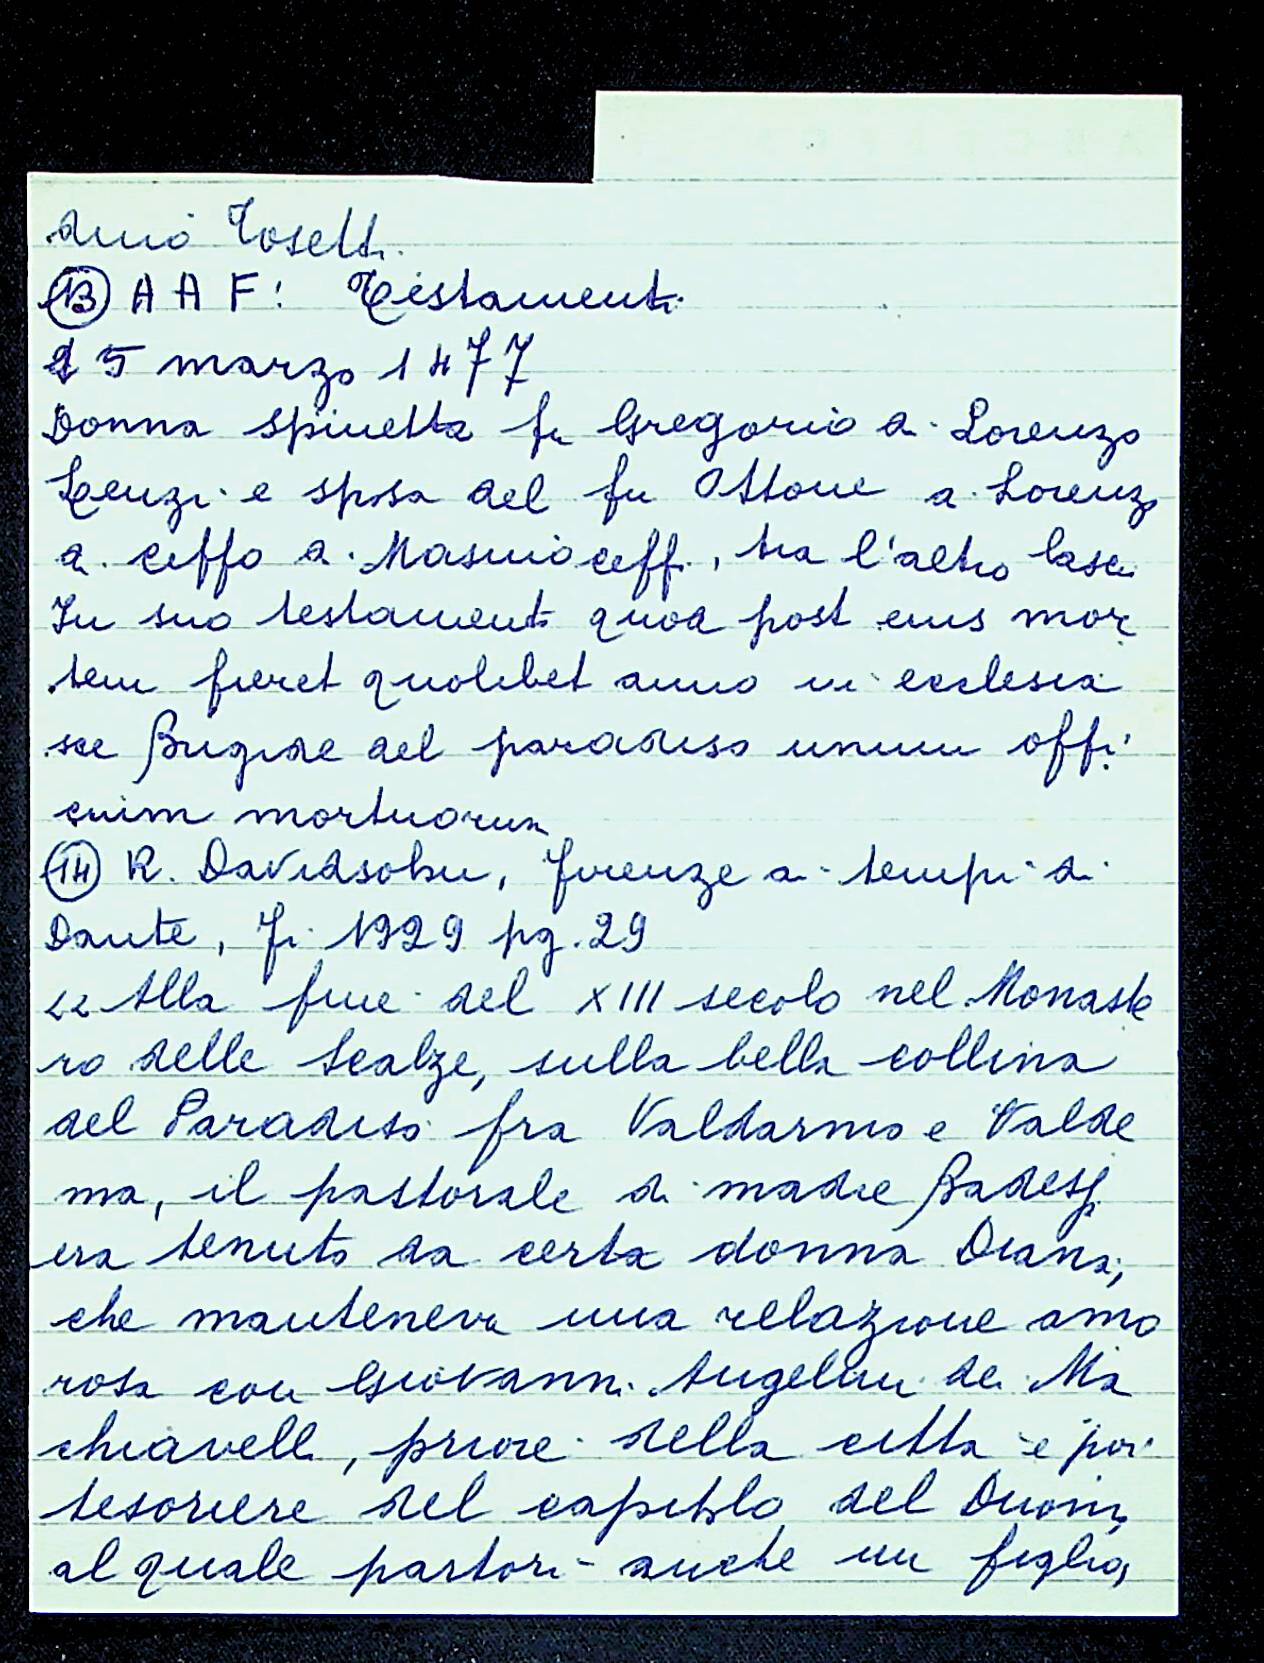 Tosetti.
(13) A A F: Testamenti
25 marzo 1477
Donna Spinetta fu Gregorio di Lorenzo
Lenzi e sposa del fu Ottone di Lorenzo
di Ceffo di Masino Ceffi, tra l'altro lascia
In suo testamenti quod post eius mor
tem fieret quolibet anno in ecclesia
sce Brigide del paradiso unum offi
cuim mortuorum
(14) R. Davidsohn, Firenze ai tempi di
Dante, Fi 1929 pg. 29
<< Alla fine del XIII secolo nel Monaste
ro delle Scalze, sulla bella collina
del Paradiso fra Valdarno e Valde
ma, il pastorale di madre Badessa
era tenuto da certa donna Diana,
che manteneva una relazione amo
rosa con Giovanni Angelini dei Ma
chiavelli, priore della città e poi
tesoriere del capitolo del Duomo,
al quale partorì anche un figlio,